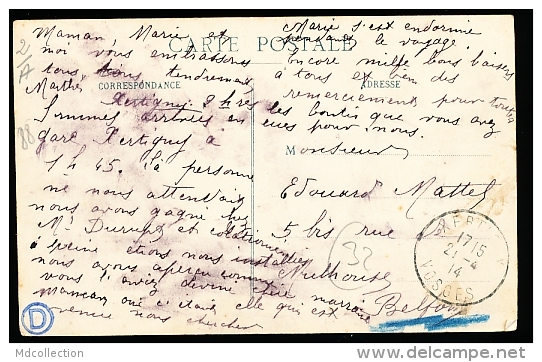 Maman, Marie et
moi vous embrassons
tous, tous tendrement
Marthe
CARTE POSTALE
CORRESPONDANCE
ADRESSE
Marie s'est endormie
pendant le voyage.
Encore mille bons baisers
à tous et bien des
remerciements pour toutes
les bontés que vous avez
eues pour nous.
Xertigny. 9 h
Sommes arrivées en
gare Xertigny à
1 h 45. Là personne
ne nous attendait
nous avons gagné
M. et
à peine étions nous installées
nous avons aperçu comme
vous l'aviez deviné chère marraine
maman qui c'était elle qui est
venue nous chercher
Monsieur
Edouard Mattel
5 bis rue de
Mulhouse
Belfort
XERT
17 15
21 - 4
14
VOSGES
32
2/A
88
D
Mdcollection
http://www.delcampe.net